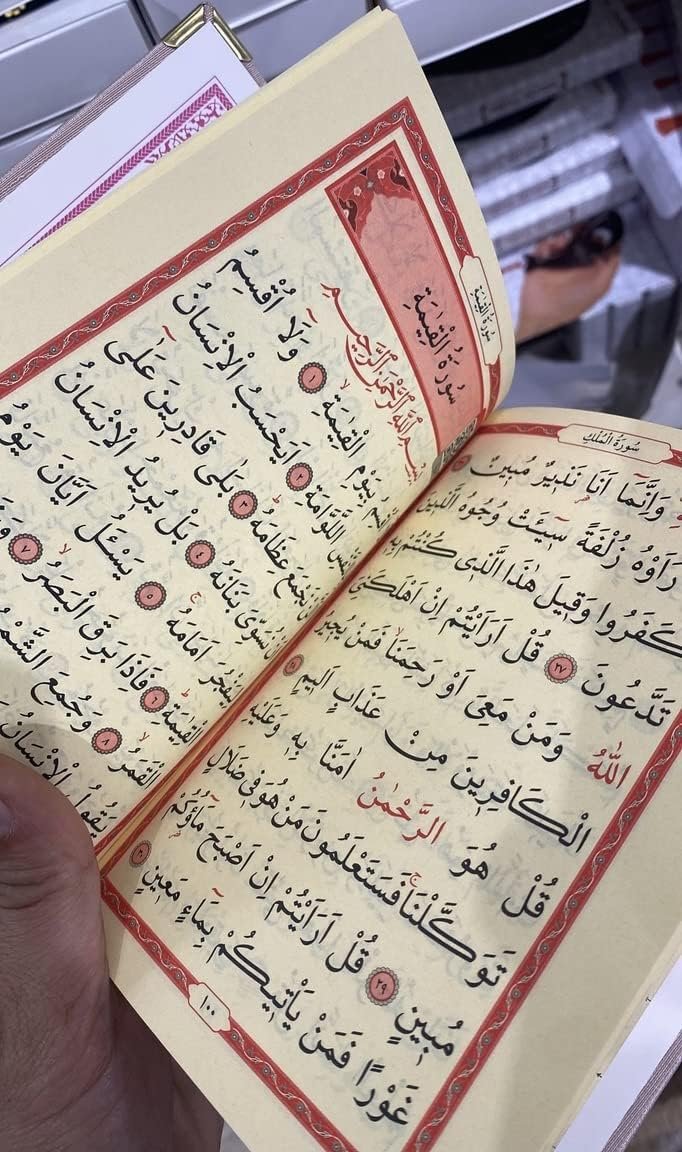 سُورَةُ الْمُلْكِ
وَاِنَّمَا اَنَا نَذِيرٌ مُبِينٌ
رَاَوْهُ زُلْفَةً سِيئَتْ وُجُوهُ الَّذِينَ
كَفَرُوا وَقِيلَ هٰذَا الَّذِي كُنْتُمْ بِهِ
تَدَّعُونَ ٢٧ قُلْ اَرَاَيْتُمْ اِنْ اَهْلَكَنِيَ
اللّٰهُ وَمَنْ مَعِيَ اَوْ رَحِمَنَا فَمَنْ يُجِيرُ
الْكَافِرِينَ مِنْ عَذَابٍ اَلِيمٍ ٢٨
قُلْ هُوَ الرَّحْمٰنُ اٰمَنَّا بِهِ وَعَلَيْهِ
تَوَكَّلْنَا فَسَتَعْلَمُونَ مَنْ هُوَ فِي ضَلَالٍ
مُبِينٍ ٢٩ قُلْ اَرَاَيْتُمْ اِنْ اَصْبَحَ مَاؤُكُمْ
غَوْرًا فَمَنْ يَاْتِيكُمْ بِمَاءٍ مَعِينٍ ٣٠
١٠٠
سُورَةُ الْقِيٰمَةِ
سُورَةُ الْقِيٰمَةِ
بِسْمِ اللّٰهِ الرَّحْمٰنِ الرَّحِيمِ
بِيَوْمِ الْقِيٰمَةِ ١ وَلَا اُقْسِمُ
اللَّوَّامَةِ ٢ اَيَحْسَبُ الْاِنْسَانُ
نَجْمَعَ عِظَامَهُ ٣ بَلٰى قَادِرِينَ عَلٰى
نُسَوِّيَ بَنَانَهُ ٤ بَلْ يُرِيدُ الْاِنْسَانُ
لِيَفْجُرَ اَمَامَهُ ٥ يَسْـَٔلُ اَيَّانَ يَوْمُ
الْقِيٰمَةِ ٦ فَاِذَا بَرِقَ الْبَصَرُ ٧
الْقَمَرُ ٨ وَجُمِعَ
يَقُولُ الْاِنْسَانُ